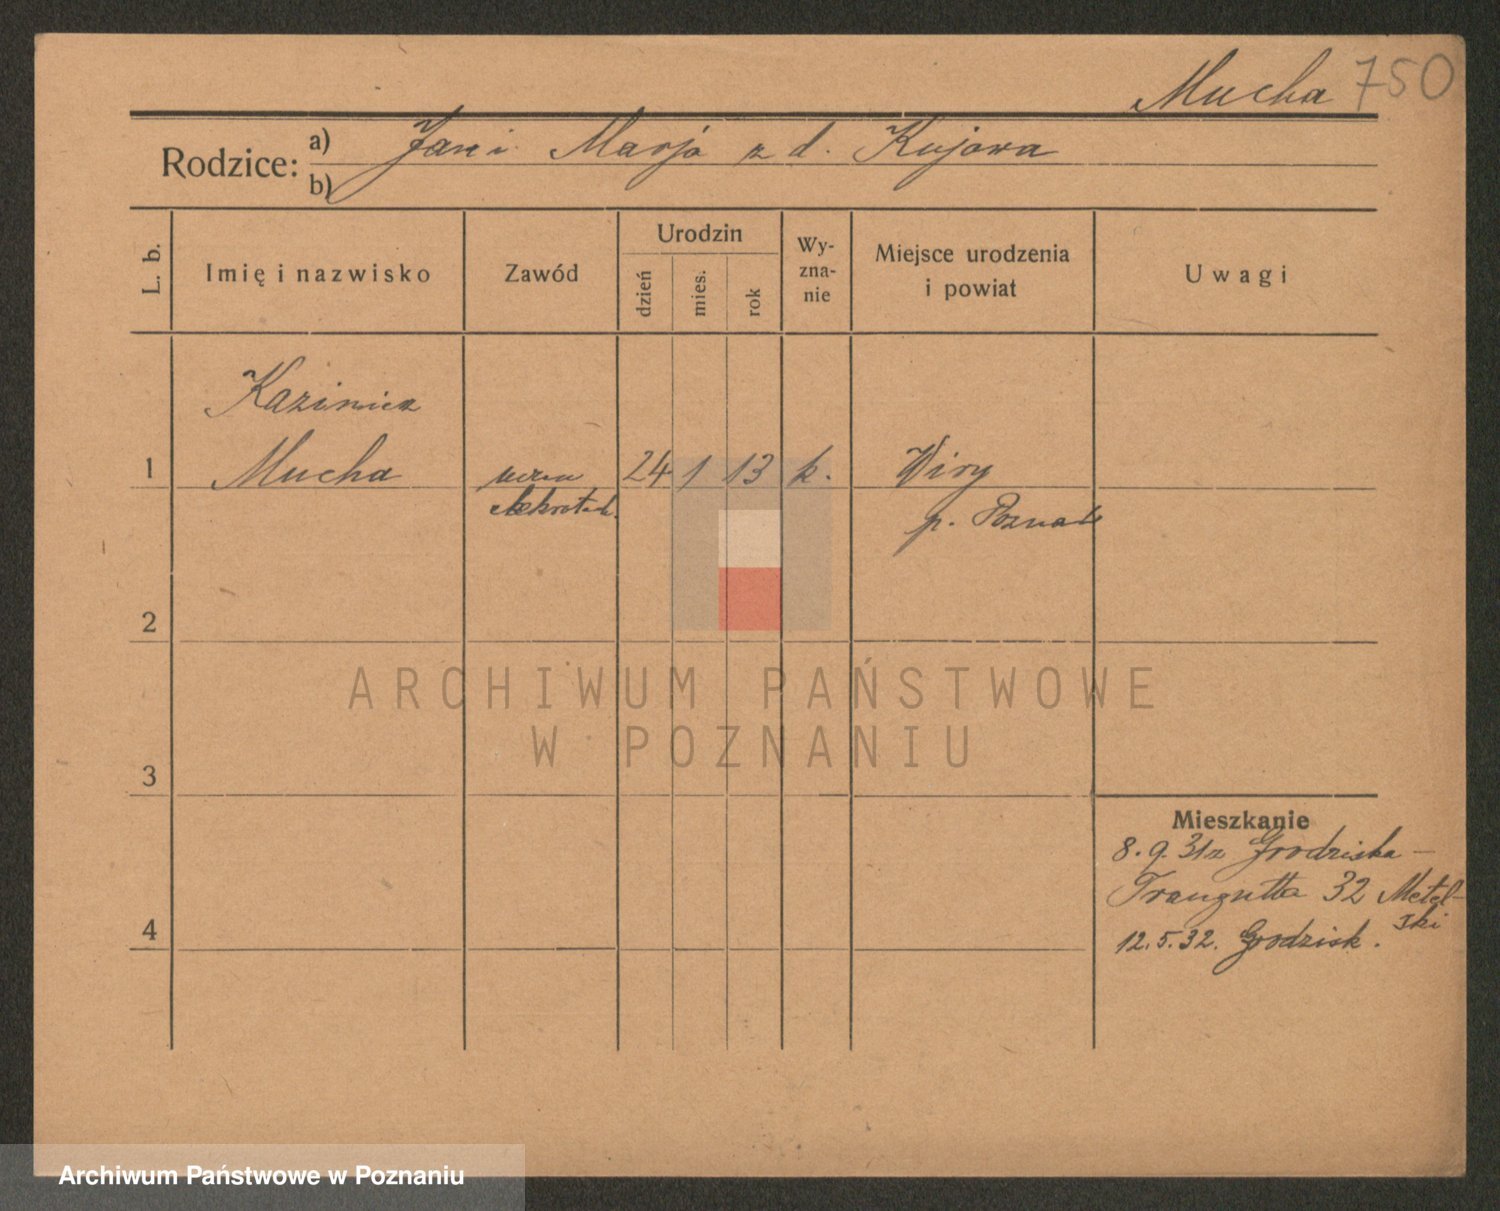 Mucha 750
Rodzice: a) Jan i Marja z d. Kujawa
b)
L. b.
Imię i nazwisko
Zawód
Urodzin
dzień
mies.
rok
Wy-
zna-
nie
Miejsce urodzenia
i powiat
Uwagi
Kazimierz
1 Mucha uczeń 24 1 13 k. Wiry
p. Poznań
2
3
4
Mieszkanie
8.9.31 z Grodziska –
Traugutta 32 Metel-
ski
12.5.32. Grodzisk.
ARCHIWUM PAŃSTWOWE
W POZNANIU
Archiwum Państwowe w Poznaniu